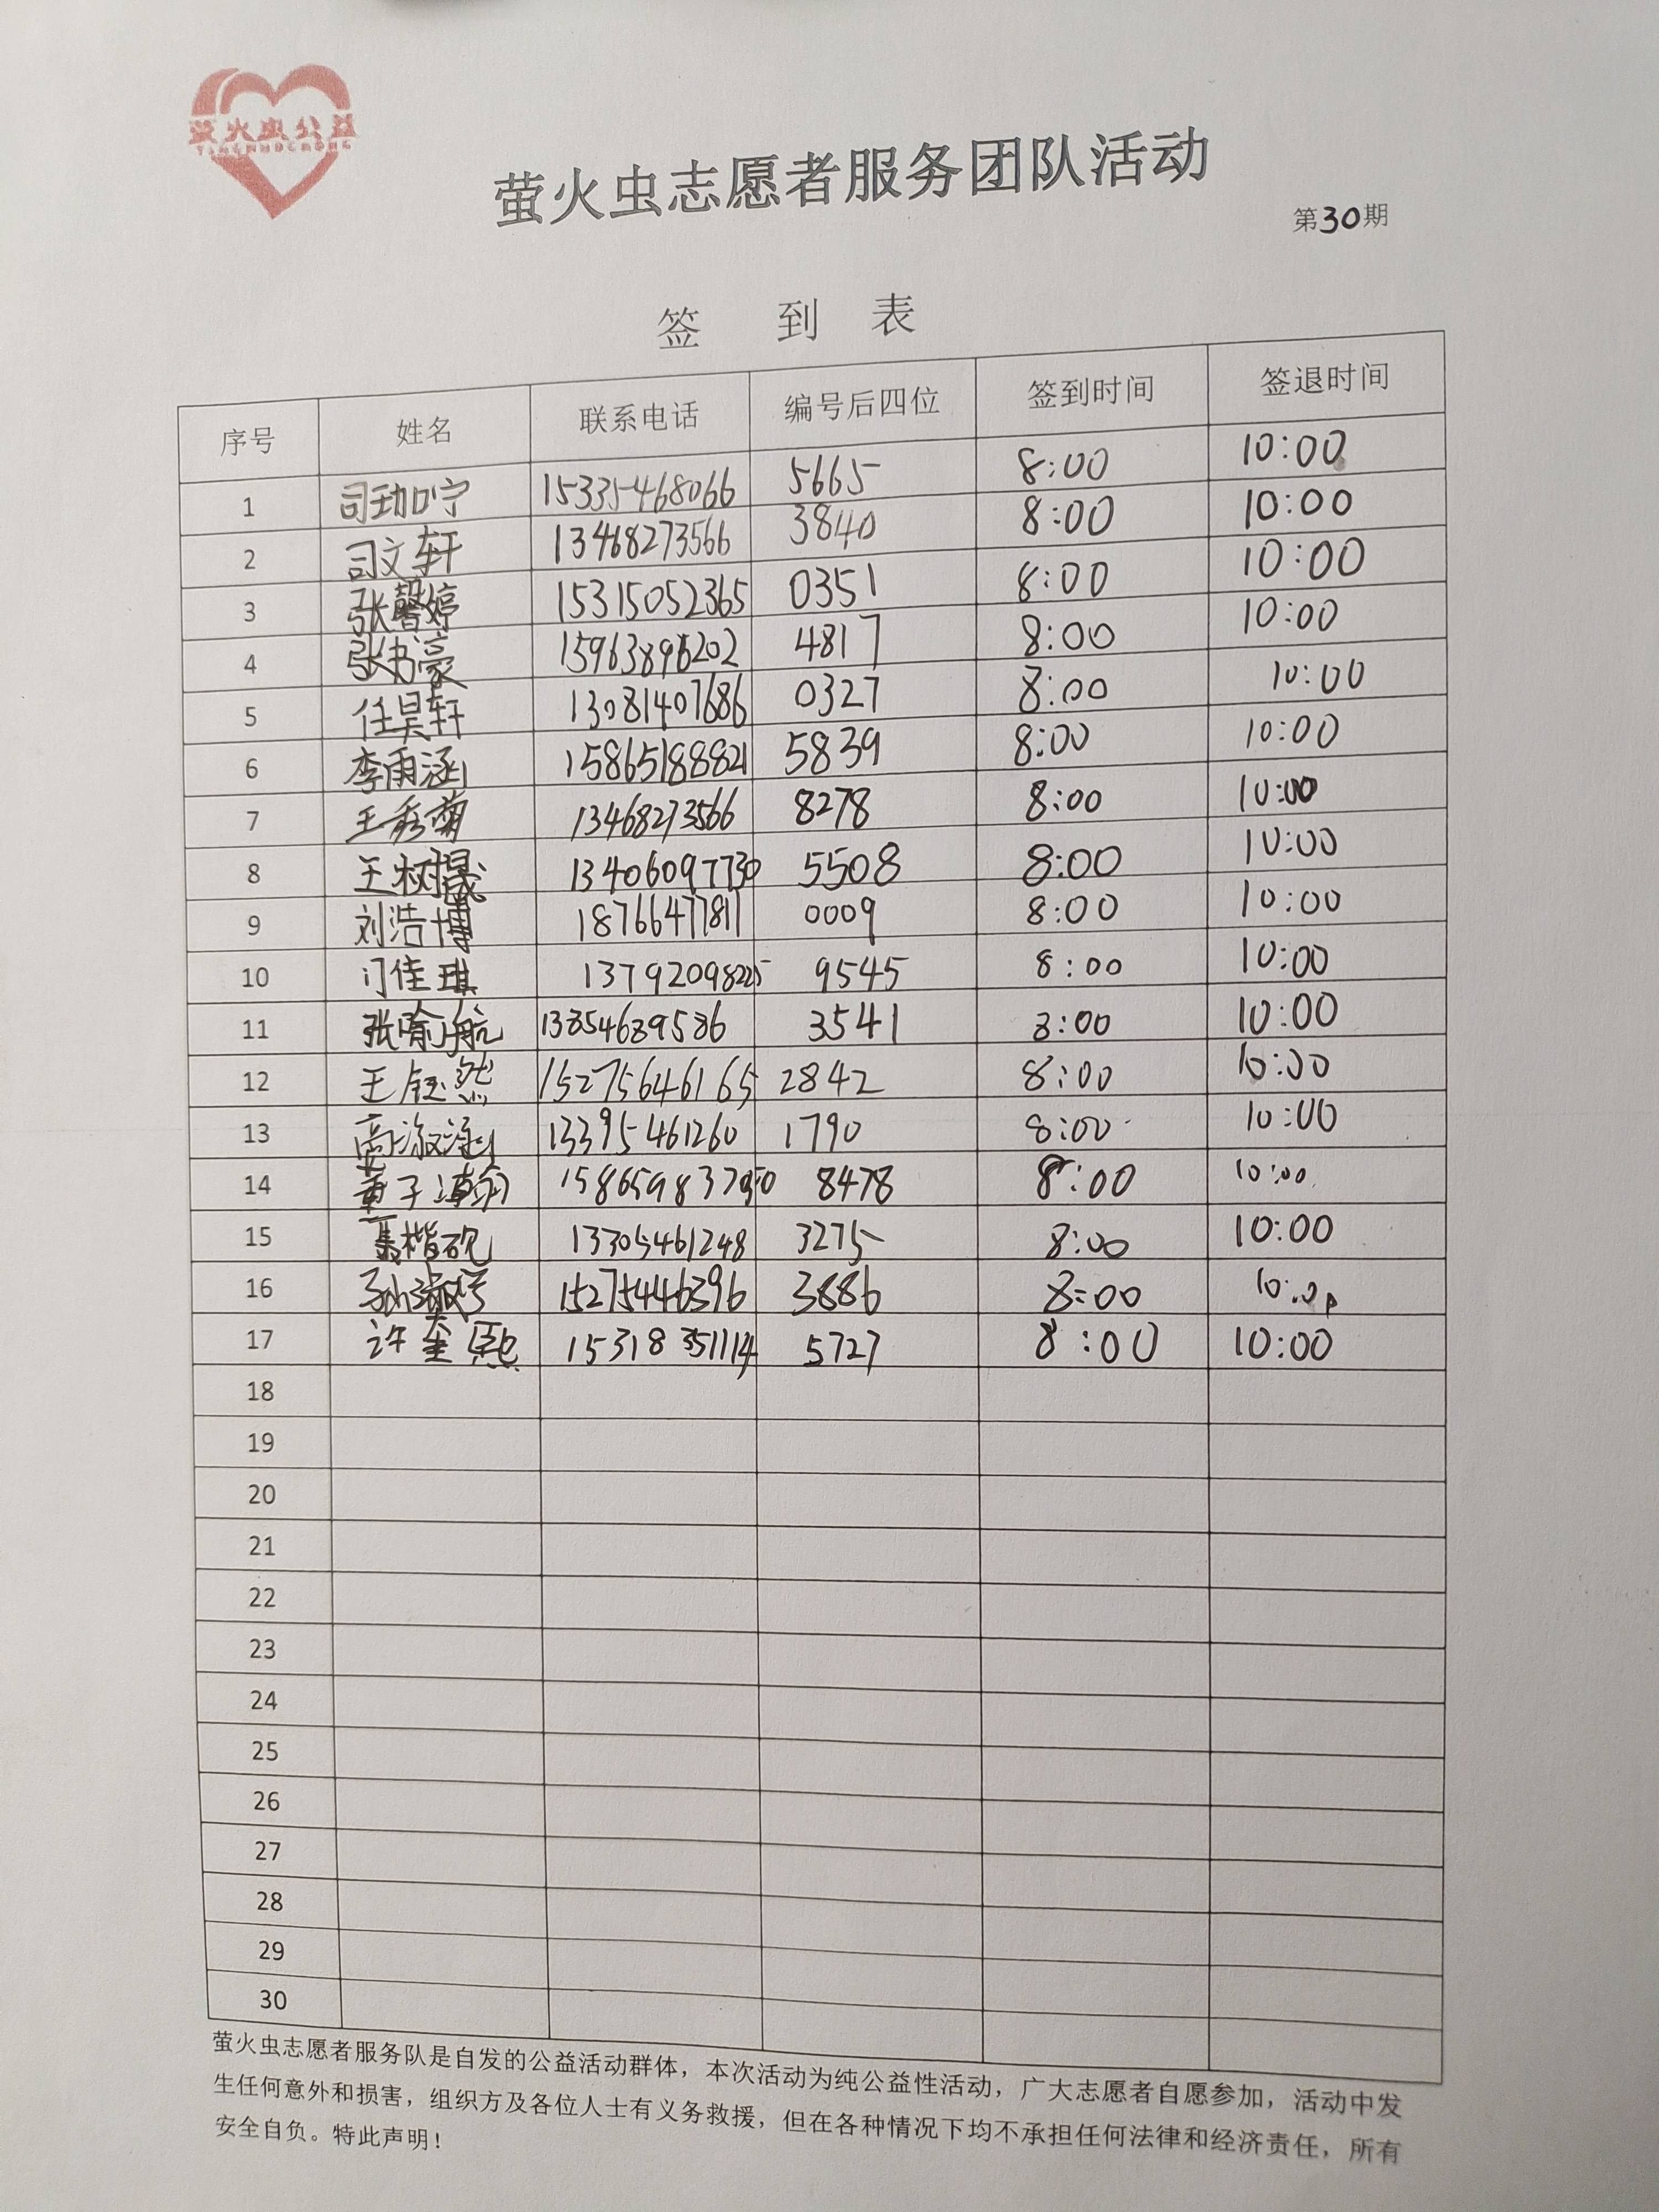 萤火虫公益
萤火虫志愿者服务团队活动
第30期
签 到 表
序号 姓名 联系电话 编号后四位 签到时间 签退时间
1 司 宁 15335468066 5665 8:00 10:00
2 司文轩 13468273566 3840 8:00 10:00
3 张馨婷 15315052365 0351 8:00 10:00
4 张书豪 15963896202 4817 8:00 10:00
5 任昊轩 13081407686 0327 8:00 10:00
6 李雨涵 15865188821 5839 8:00 10:00
7 王秀菊 13468273566 8278 8:00 10:00
8 王树晟 13406097730 5508 8:00 10:00
9 刘浩博 18766477811 0009 8:00 10:00
10 门佳琪 13792098225 9545 8:00 10:00
11 张喻航 13854689586 3541 8:00 10:00
12 王钰然 15275646165 2842 8:00 10:00
13 高淑涵 13395461260 1790 8:00 10:00
14 董子 8478 8:00 10:00
15 楷砚 13305461248 3275 8:00 10:00
16 孙 15275446396 3886 8:00 10:00
17 许 熙 15318351114 5727 8:00 10:00
18
19
20
21
22
23
24
25
26
27
28
29
30
萤火虫志愿者服务队是自发的公益活动群体，本次活动为纯公益性活动，广大志愿者自愿参加，活动中发
生任何意外和损害，组织方及各位人士有义务救援，但在各种情况下均不承担任何法律和经济责任，所有
安全自负。特此声明！